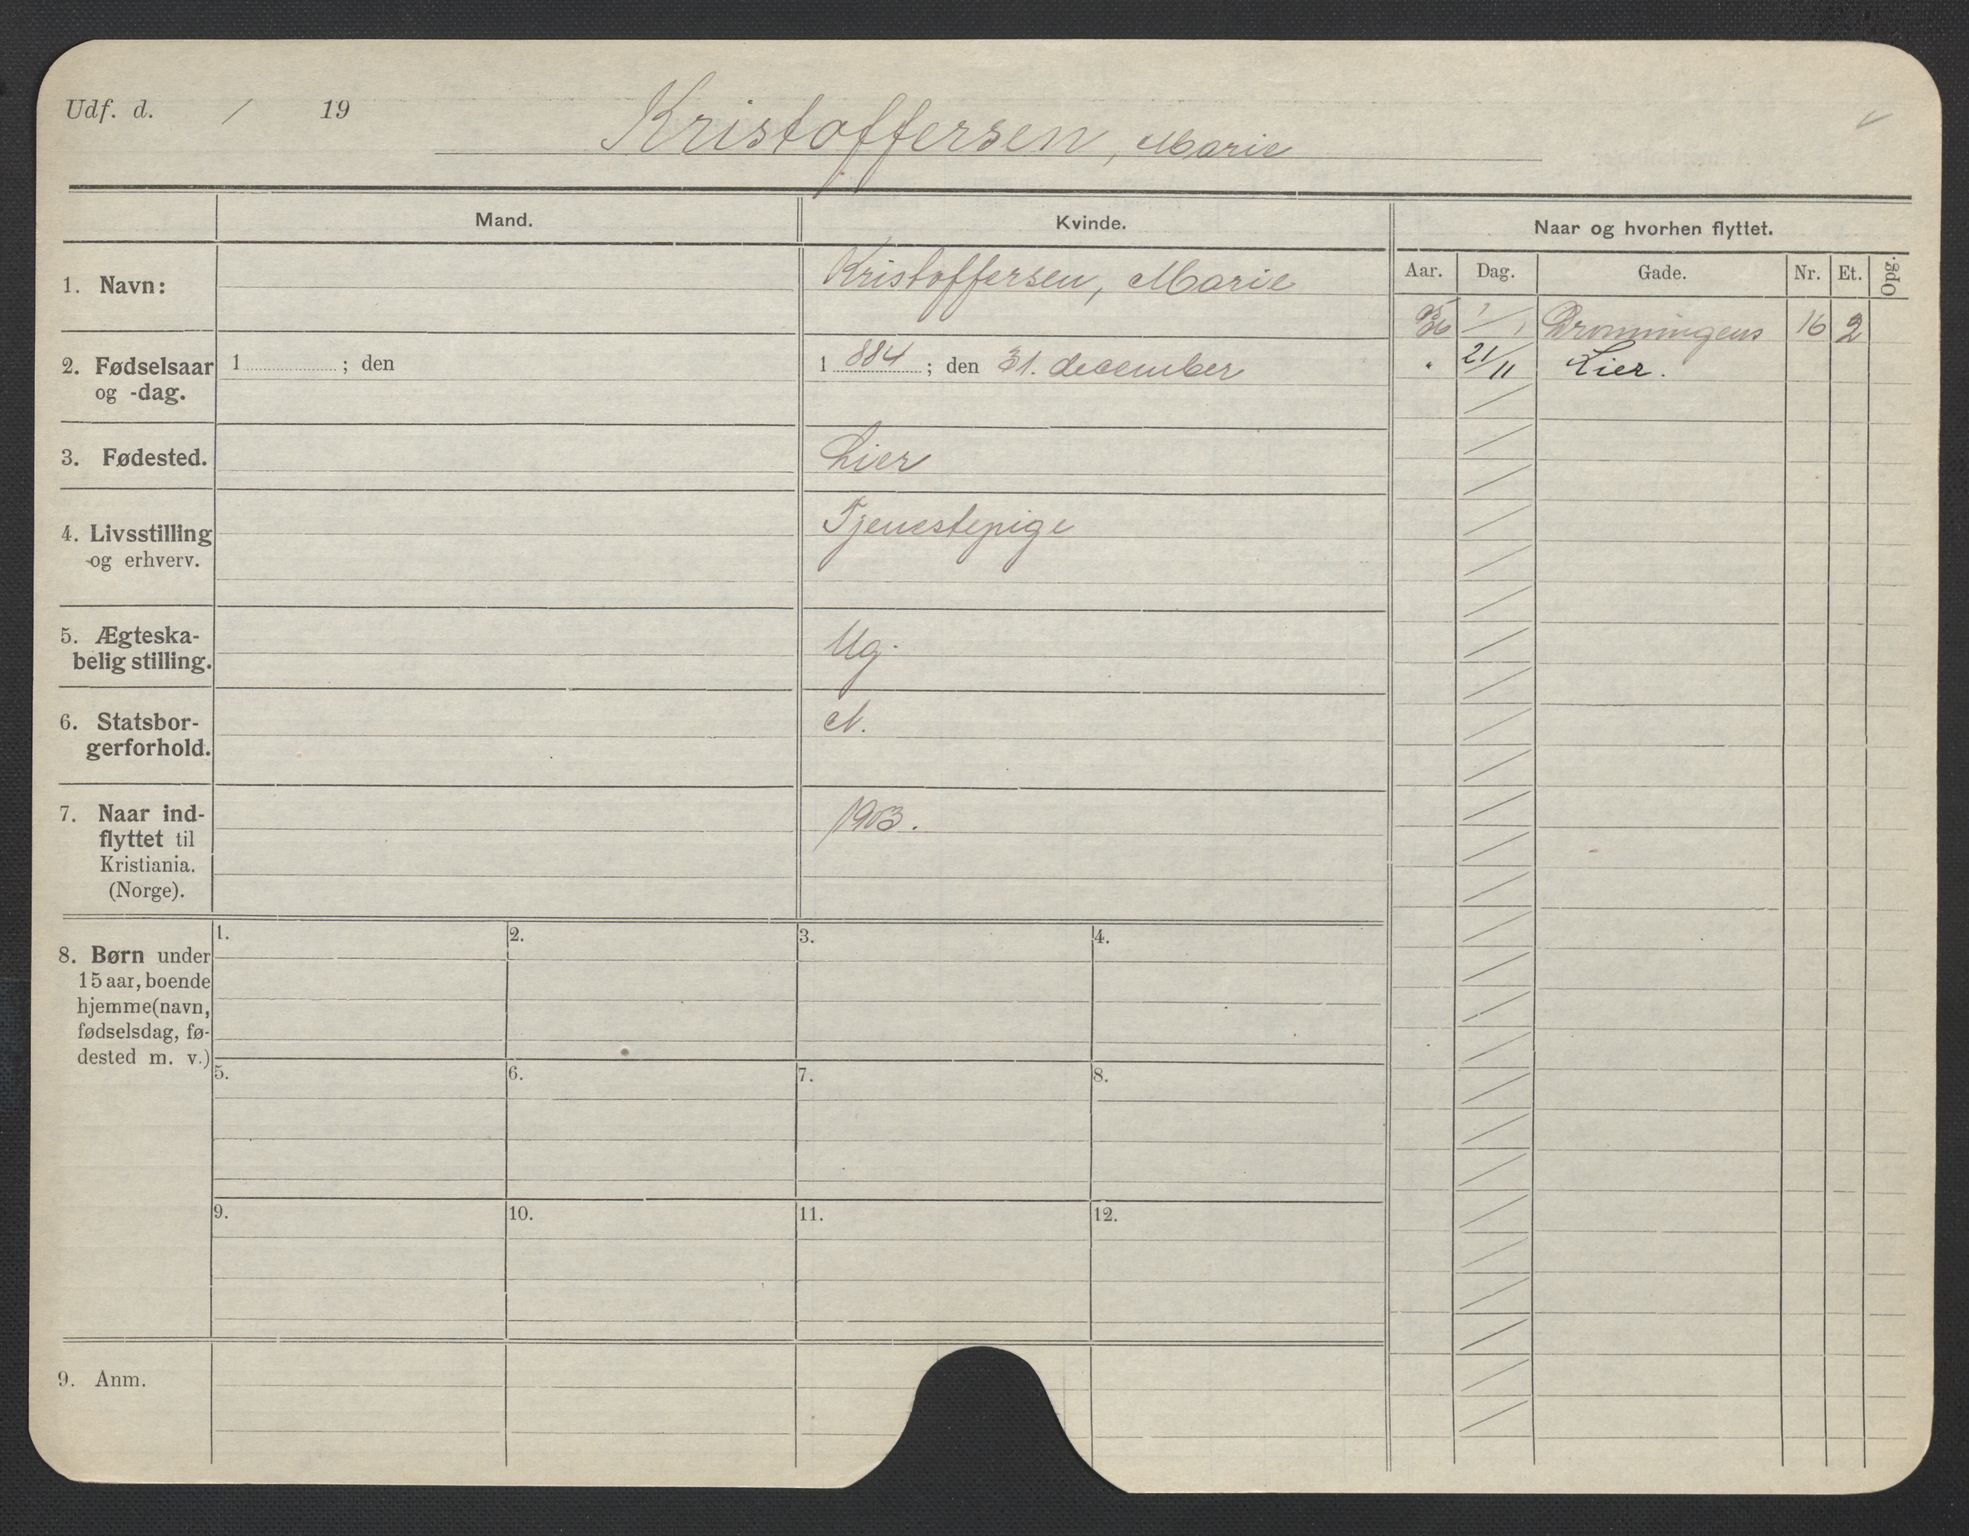 Udf. d. / 19
Kristoffersen, Marie
Mand.
Kvinde.
Naar og hvorhen flyttet.
Aar. Dag. Gade. Nr. Et. Opg.
1. Navn:
Kristoffersen, Marie
05/06 1/1 Dronningens 16 2
" 21/11 Lier.
2. Fødselsaar
og -dag.
1 ; den
1 884 ; den 31. december
3. Fødested.
Lier
4. Livsstilling
og erhverv.
Tjenestepige
5. Ægteska-
belig stilling.
Ug.
6. Statsbor-
gerforhold.
N.
7. Naar ind-
flyttet til
Kristiania.
(Norge).
1903.
8. Børn under
15 aar, boende
hjemme (navn,
fødselsdag, fø-
dested m. v.)
1. 2. 3. 4.
5. 6. 7. 8.
9. 10. 11. 12.
9. Anm.